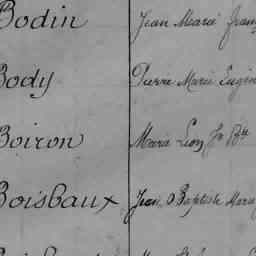 Bodin Jean Marie Franç
Body Pierre Marie Eugèn
Boiron Marie Léon Jn Bte
Boisbaux Jean Baptiste Marie